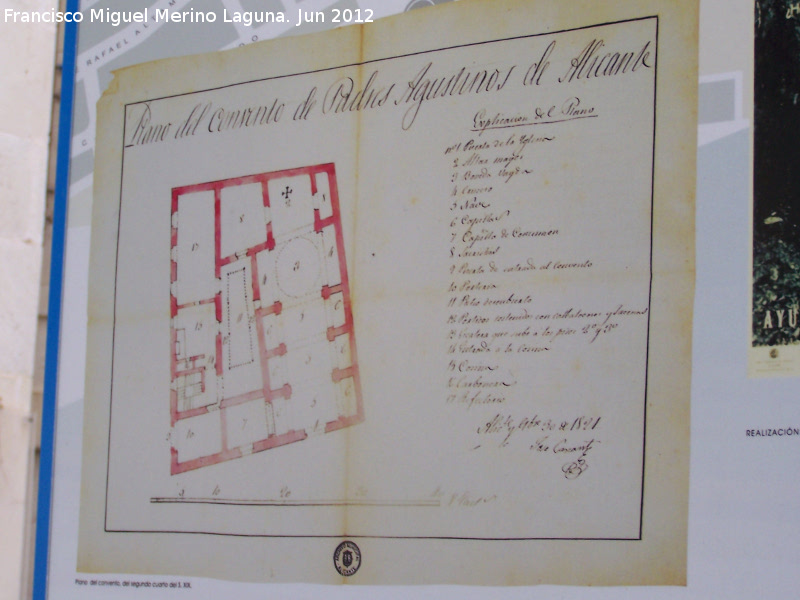 Francisco Miguel Merino Laguna. Jun 2012
RAFAEL AL
Plano del Convento de Padres Agustinos de Alicante
Explicacion del Plano
nº 1 Puerta de la Yglesia
2 Altar mayor
3
4 Crucero
5 Nave
6 Capillas
7 Capilla de Comunion
8 Sacristia
9 Puerta de entrada al Convento
10 Porteria
11 Patio descubierto
12 Porticos sostenidos con
13 Escalera que sube a los pisos 2º y 3º
14 Entrada a la Cocina
15 Cocina
16 Carbonera
17 Refectorio
30 de 1821
AYU
REALIZACIÓN
Plano del convento, del segundo cuarto del S. XIX.